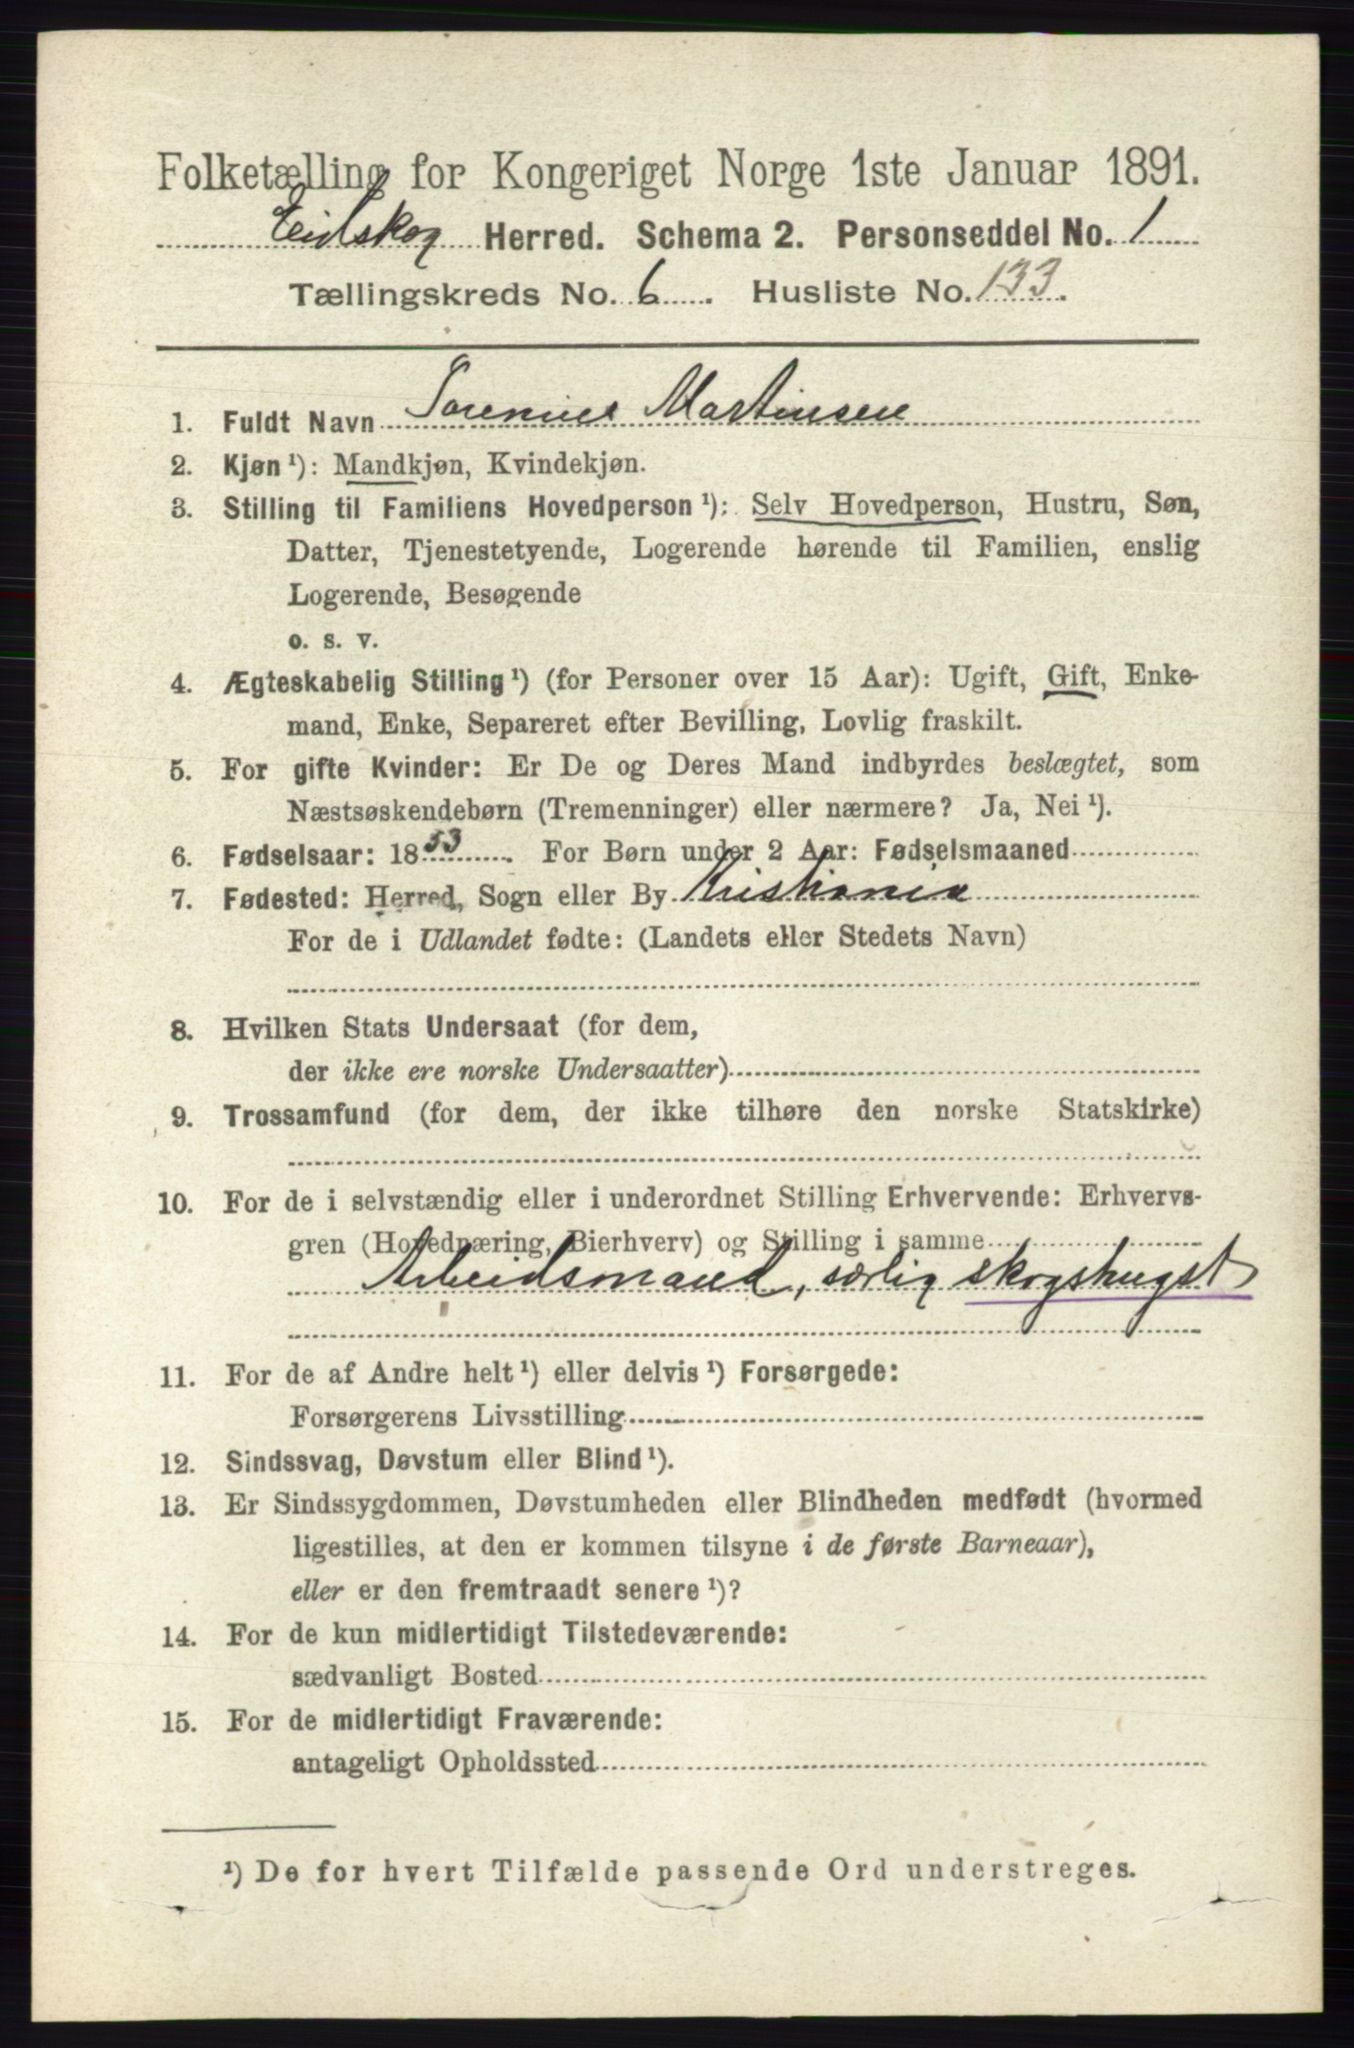 Folketælling for Kongeriget Norge 1ste Januar 1891.
Eidskog Herred. Schema 2. Personseddel No. 1
Tællingskreds No. 6. Husliste No. 133.
1. Fuldt Navn Sorenius Martinsen
2. Kjøn ¹): Mandkjøn, Kvindekjøn.
3. Stilling til Familiens Hovedperson ¹): Selv Hovedperson, Hustru, Søn,
Datter, Tjenestetyende, Logerende hørende til Familien, enslig
Logerende, Besøgende
o. s. v.
4. Ægteskabelig Stilling ¹) (for Personer over 15 Aar): Ugift, Gift, Enke-
mand, Enke, Separeret efter Bevilling, Lovlig fraskilt.
5. For gifte Kvinder: Er De og Deres Mand indbyrdes beslægtet, som
Næstsøskendebørn (Tremenninger) eller nærmere? Ja, Nei ¹).
6. Fødselsaar: 1853. For Børn under 2 Aar: Fødselsmaaned
7. Fødested: Herred, Sogn eller By Kristiania
For de i Udlandet fødte: (Landets eller Stedets Navn)
8. Hvilken Stats Undersaat (for dem,
der ikke ere norske Undersaatter)
9. Trossamfund (for dem, der ikke tilhøre den norske Statskirke)
10. For de i selvstændig eller i underordnet Stilling Erhvervende: Erhvervs-
gren (Hovednæring, Bierhverv) og Stilling i samme
Arbeidsmand, særlig skogshugst
11. For de af Andre helt ¹) eller delvis ¹) Forsørgede:
Forsørgerens Livsstilling
12. Sindssvag, Døvstum eller Blind ¹).
13. Er Sindssygdommen, Døvstumheden eller Blindheden medfødt (hvormed
ligestilles, at den er kommen tilsyne i de første Barneaar),
eller er den fremtraadt senere ¹)?
14. For de kun midlertidigt Tilstedeværende:
sædvanligt Bosted
15. For de midlertidigt Fraværende:
antageligt Opholdssted
¹) De for hvert Tilfælde passende Ord understreges.